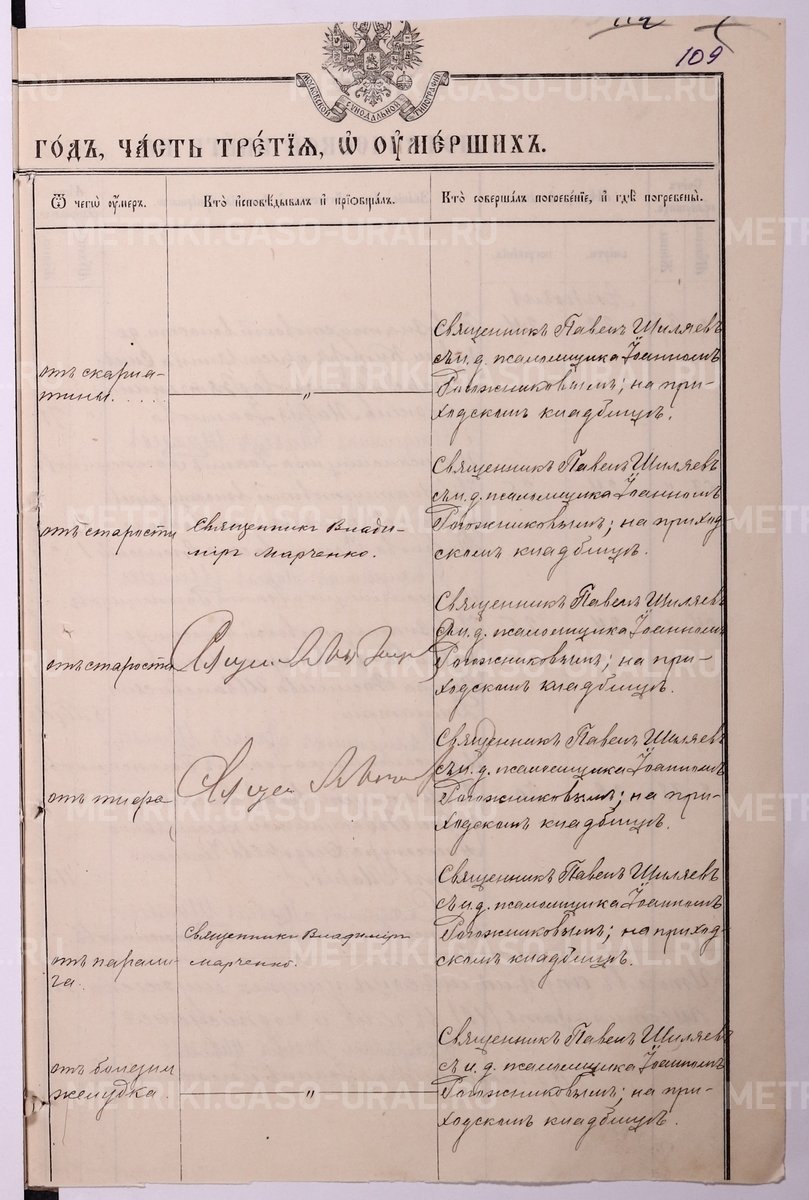 109
МОСКОВСКОЙ СѴНОДАЛЬНОЙ ТИПОГРАФІИ
ГО́ДЪ, ЧА́СТЬ ТРЕ́ТІЯ, Ѡ ОУМЕ́РШИХЪ.
Ѿ чегѡ̀ оу҆́меръ.
Кто̀ и҆сповѣ́дывалъ и҆ прїѻбща́лъ.
Кто̀ соверша́лъ погребе́нїе, и҆ гдѣ̀ погребены̀.
отъ скарла-
тины.....
"
Священникъ Павелъ Шиляевъ
съ и. д. псаломщика Іоанномъ
Рогожниковымъ; на при-
ходскомъ кладбищѣ.
отъ старости
Священникъ Влади-
міръ Марченко.
Священникъ Павелъ Шиляевъ
съ и. д. псаломщика Іоанномъ
Рогожниковымъ; на приход-
скомъ кладбищѣ.
отъ старости
Священникъ Павелъ Шиляевъ
съ и. д. псаломщика Іоанномъ
Рогожниковымъ; на при-
ходскомъ кладбищѣ.
отъ тифа
Священникъ Павелъ Шиляевъ
съ и. д. псаломщика Іоанномъ
Рогожниковымъ; на при-
ходскомъ кладбищѣ.
отъ парали-
ча.
Священникъ Владиміръ
Марченко.
Священникъ Павелъ Шиляевъ
съ и. д. псаломщика Іоанномъ
Рогожниковымъ; на приход-
скомъ кладбищѣ.
отъ болезни
желудка.
"
Священникъ Павелъ Шиляевъ
съ и. д. псаломщика Іоанномъ
Рогожниковымъ; на при-
ходскомъ кладбищѣ.
METRIKI.GASO-URAL.RU